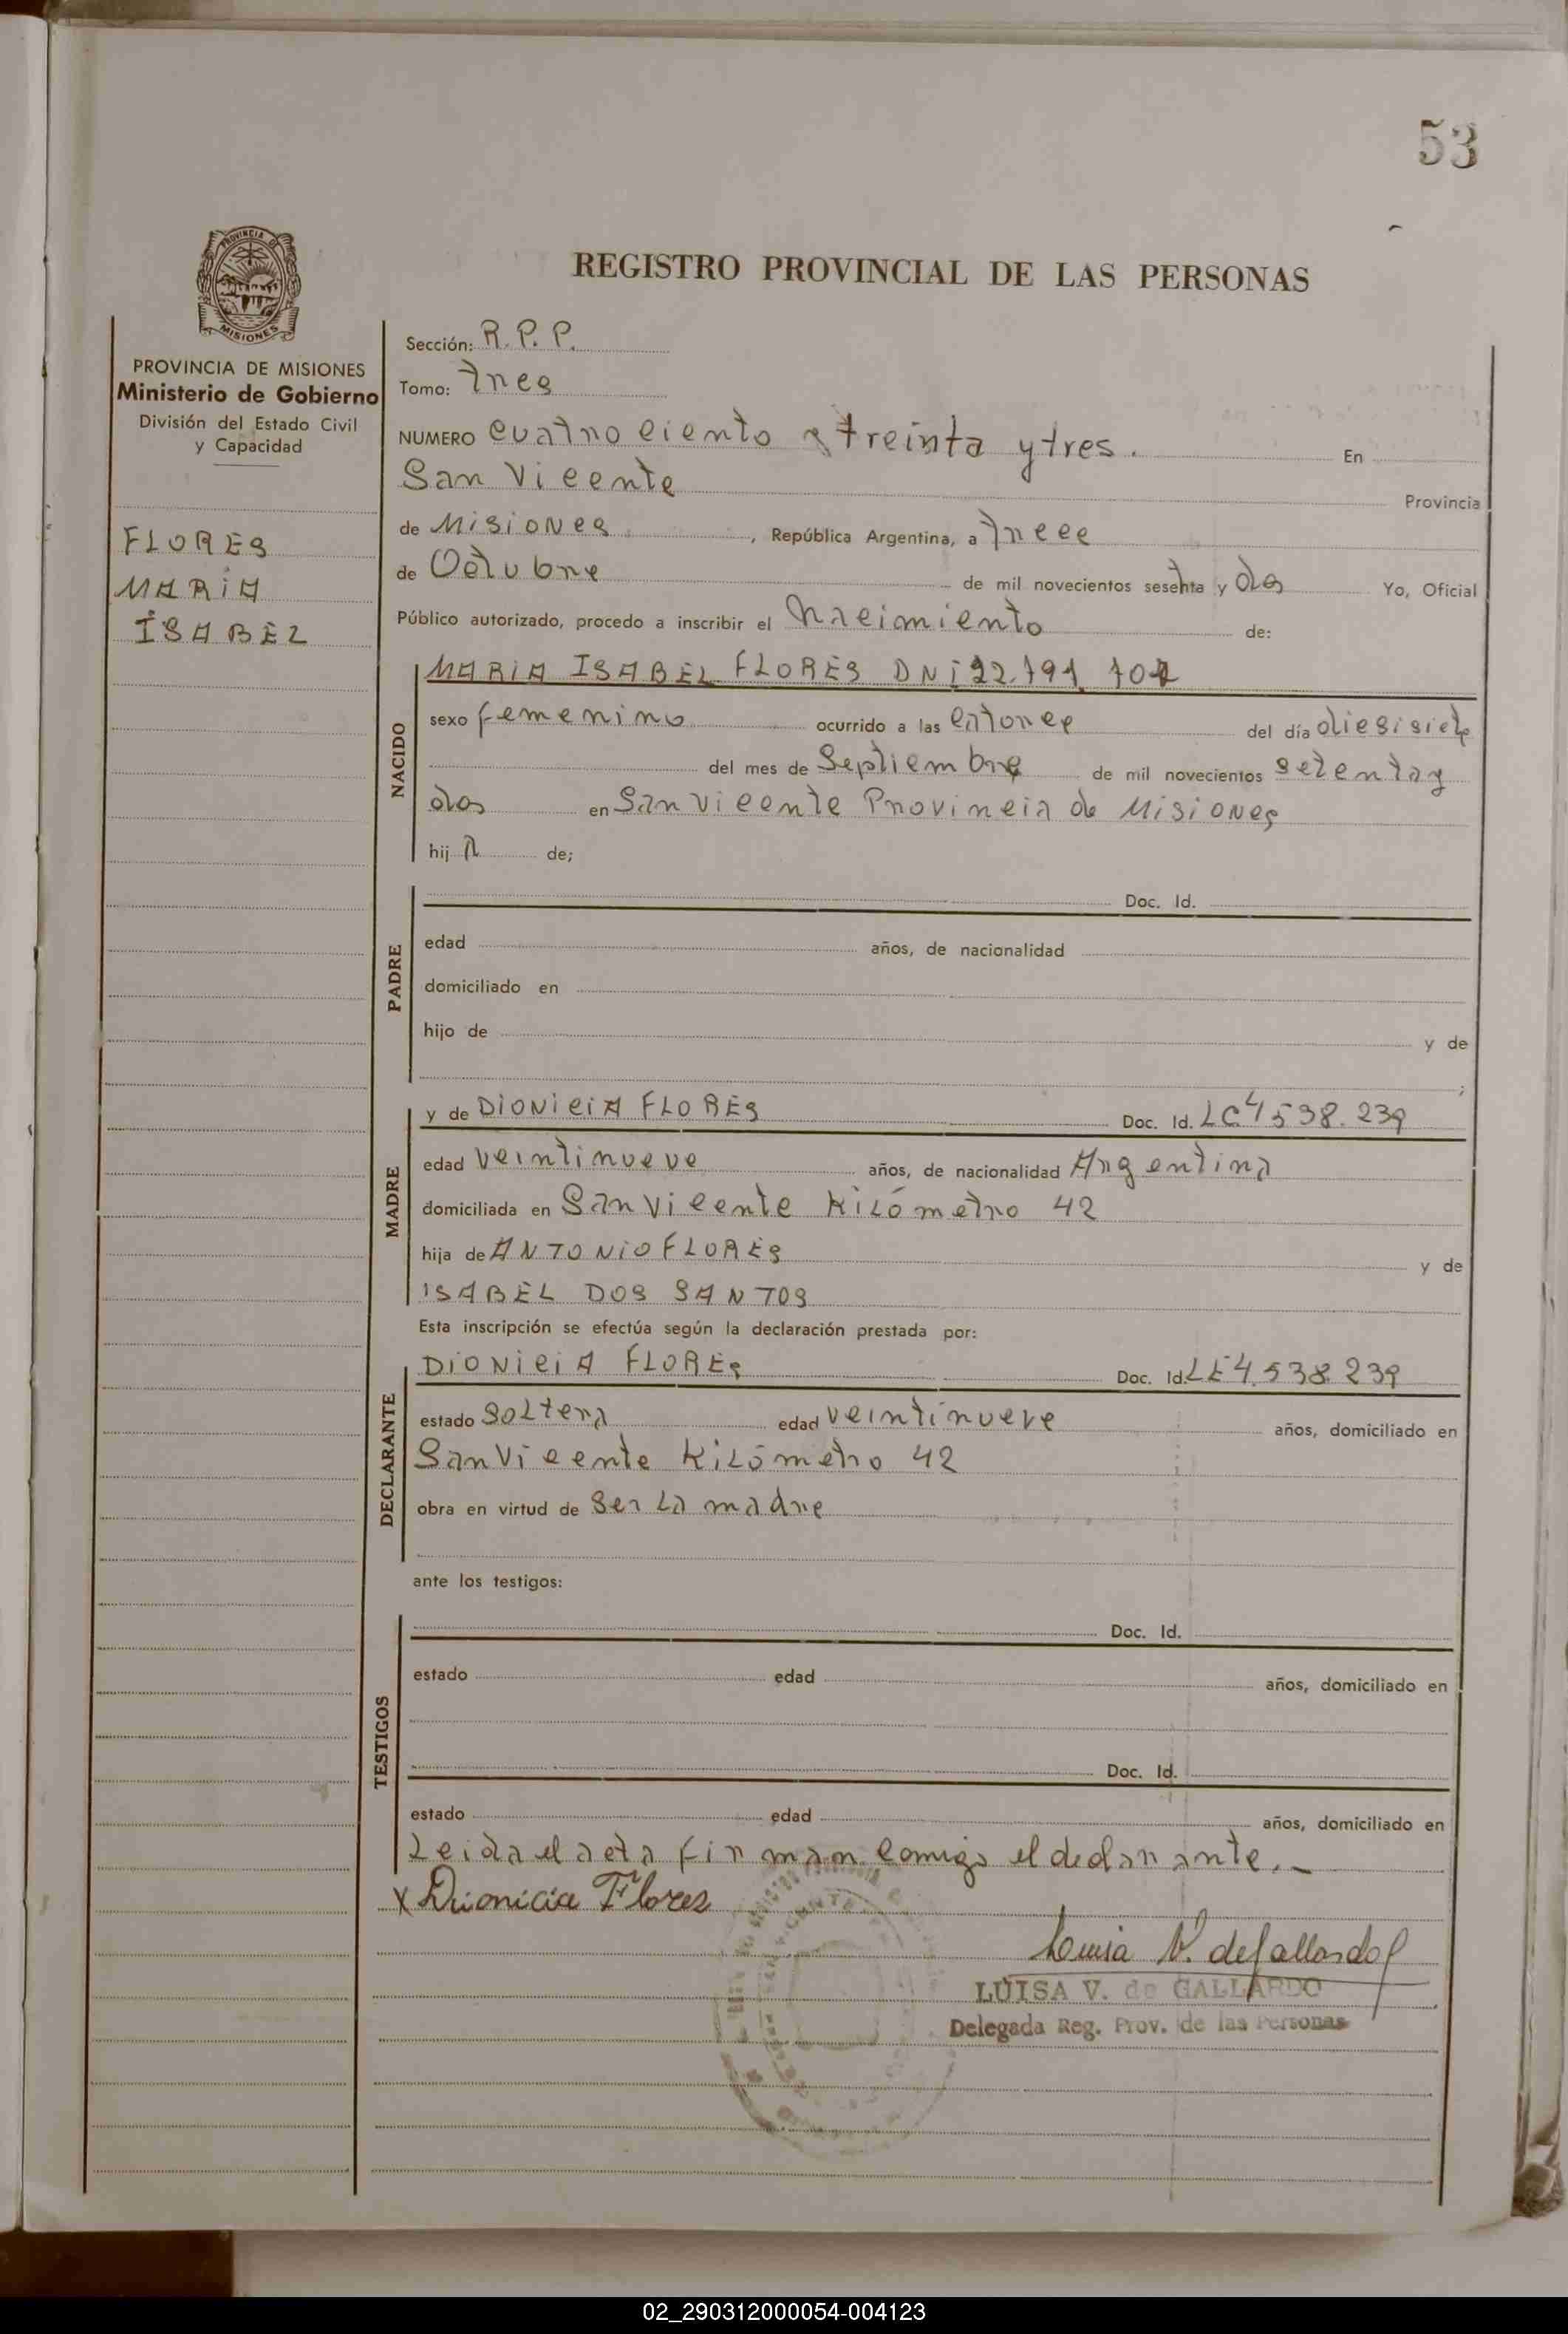 53
PROVINCIA DE
MISIONES
REGISTRO PROVINCIAL DE LAS PERSONAS
PROVINCIA DE MISIONES
Ministerio de Gobierno
División del Estado Civil
y Capacidad
FLORES
MARIA
ISABEL
Sección: R.P.P.
Tomo: Tres
NUMERO cuatrociento s treinta y tres. En
San Vicente Provincia
de Misiones, República Argentina, a trece
de Octubre de mil novecientos sesenta y dos Yo, Oficial
Público autorizado, procedo a inscribir el Nacimiento de:
NACIDO
MARIA ISABEL FLORES DNI 22.791.70
sexo femenino ocurrido a las catorce del día diesisiete
del mes de Septiembre de mil novecientos setenta y
dos en San Vicente Provincia de Misiones
hij a de;
PADRE
Doc. Id.
edad años, de nacionalidad
domiciliado en
hijo de y de
;
MADRE
y de DIONICIA FLORES Doc. Id. LC 4538.239
edad veintinueve años, de nacionalidad Argentina
domiciliada en San Vicente Kilómetro 42
hija de ANTONIO FLORES y de
ISABEL DOS SANTOS
Esta inscripción se efectúa según la declaración prestada por:
DECLARANTE
DIONICIA FLORES Doc. Id. LE 4.538.239
estado Soltera edad veintinueve años, domiciliado en
San Vicente Kilómetro 42
obra en virtud de Ser la madre
ante los testigos:
TESTIGOS
Doc. Id.
estado edad años, domiciliado en
Doc. Id.
estado edad años, domiciliado en
Leida el acta firman comigo el declarante.-
x Dionicia Flores
Luisa V. de Gallardo
LUISA V. de GALLARDO
Delegada Reg. Prov. de las Personas
02_290312000054-004123